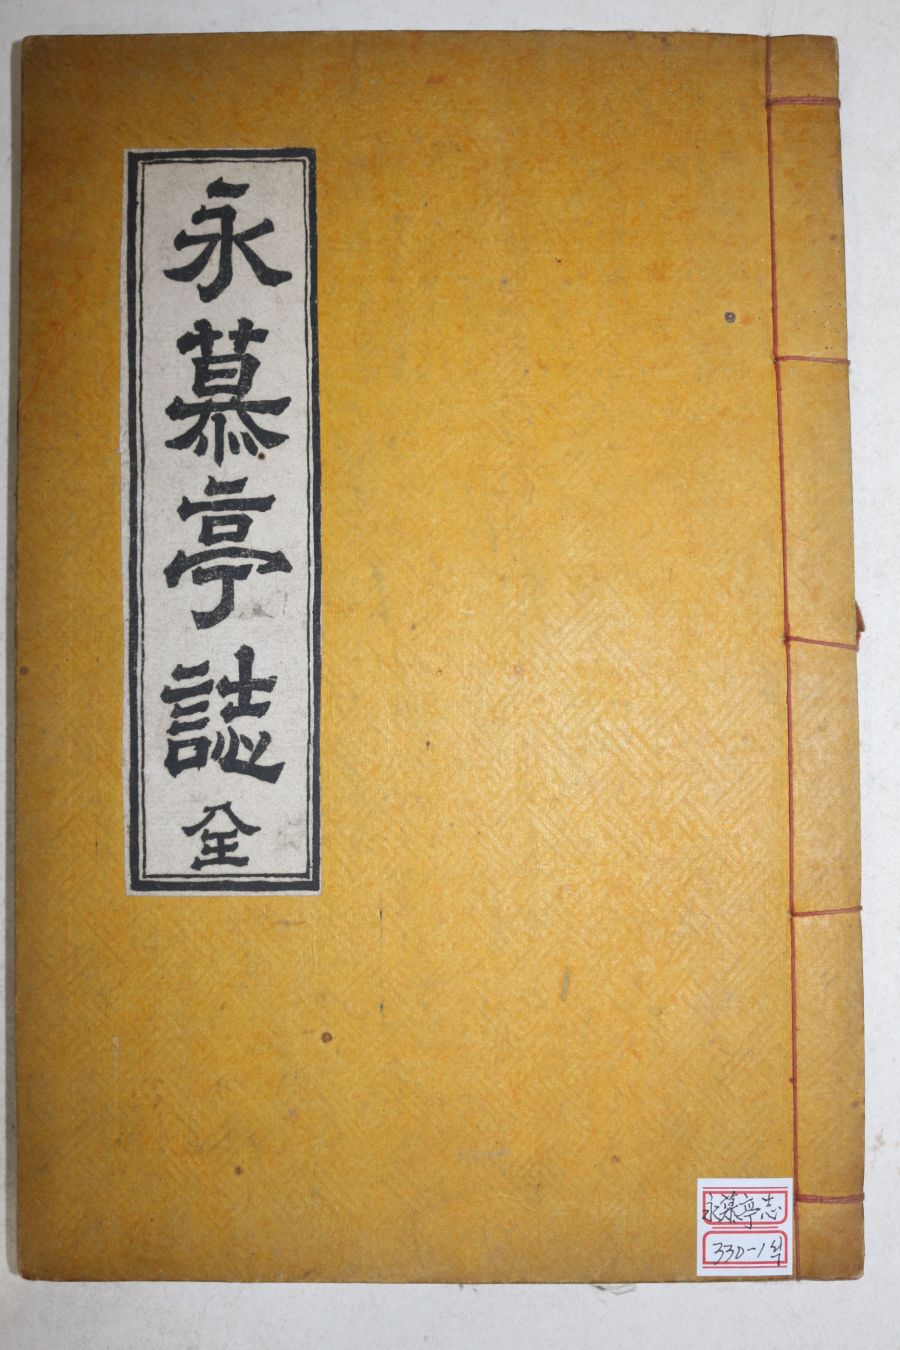 永慕亭誌 全
永慕亭志
330-1책